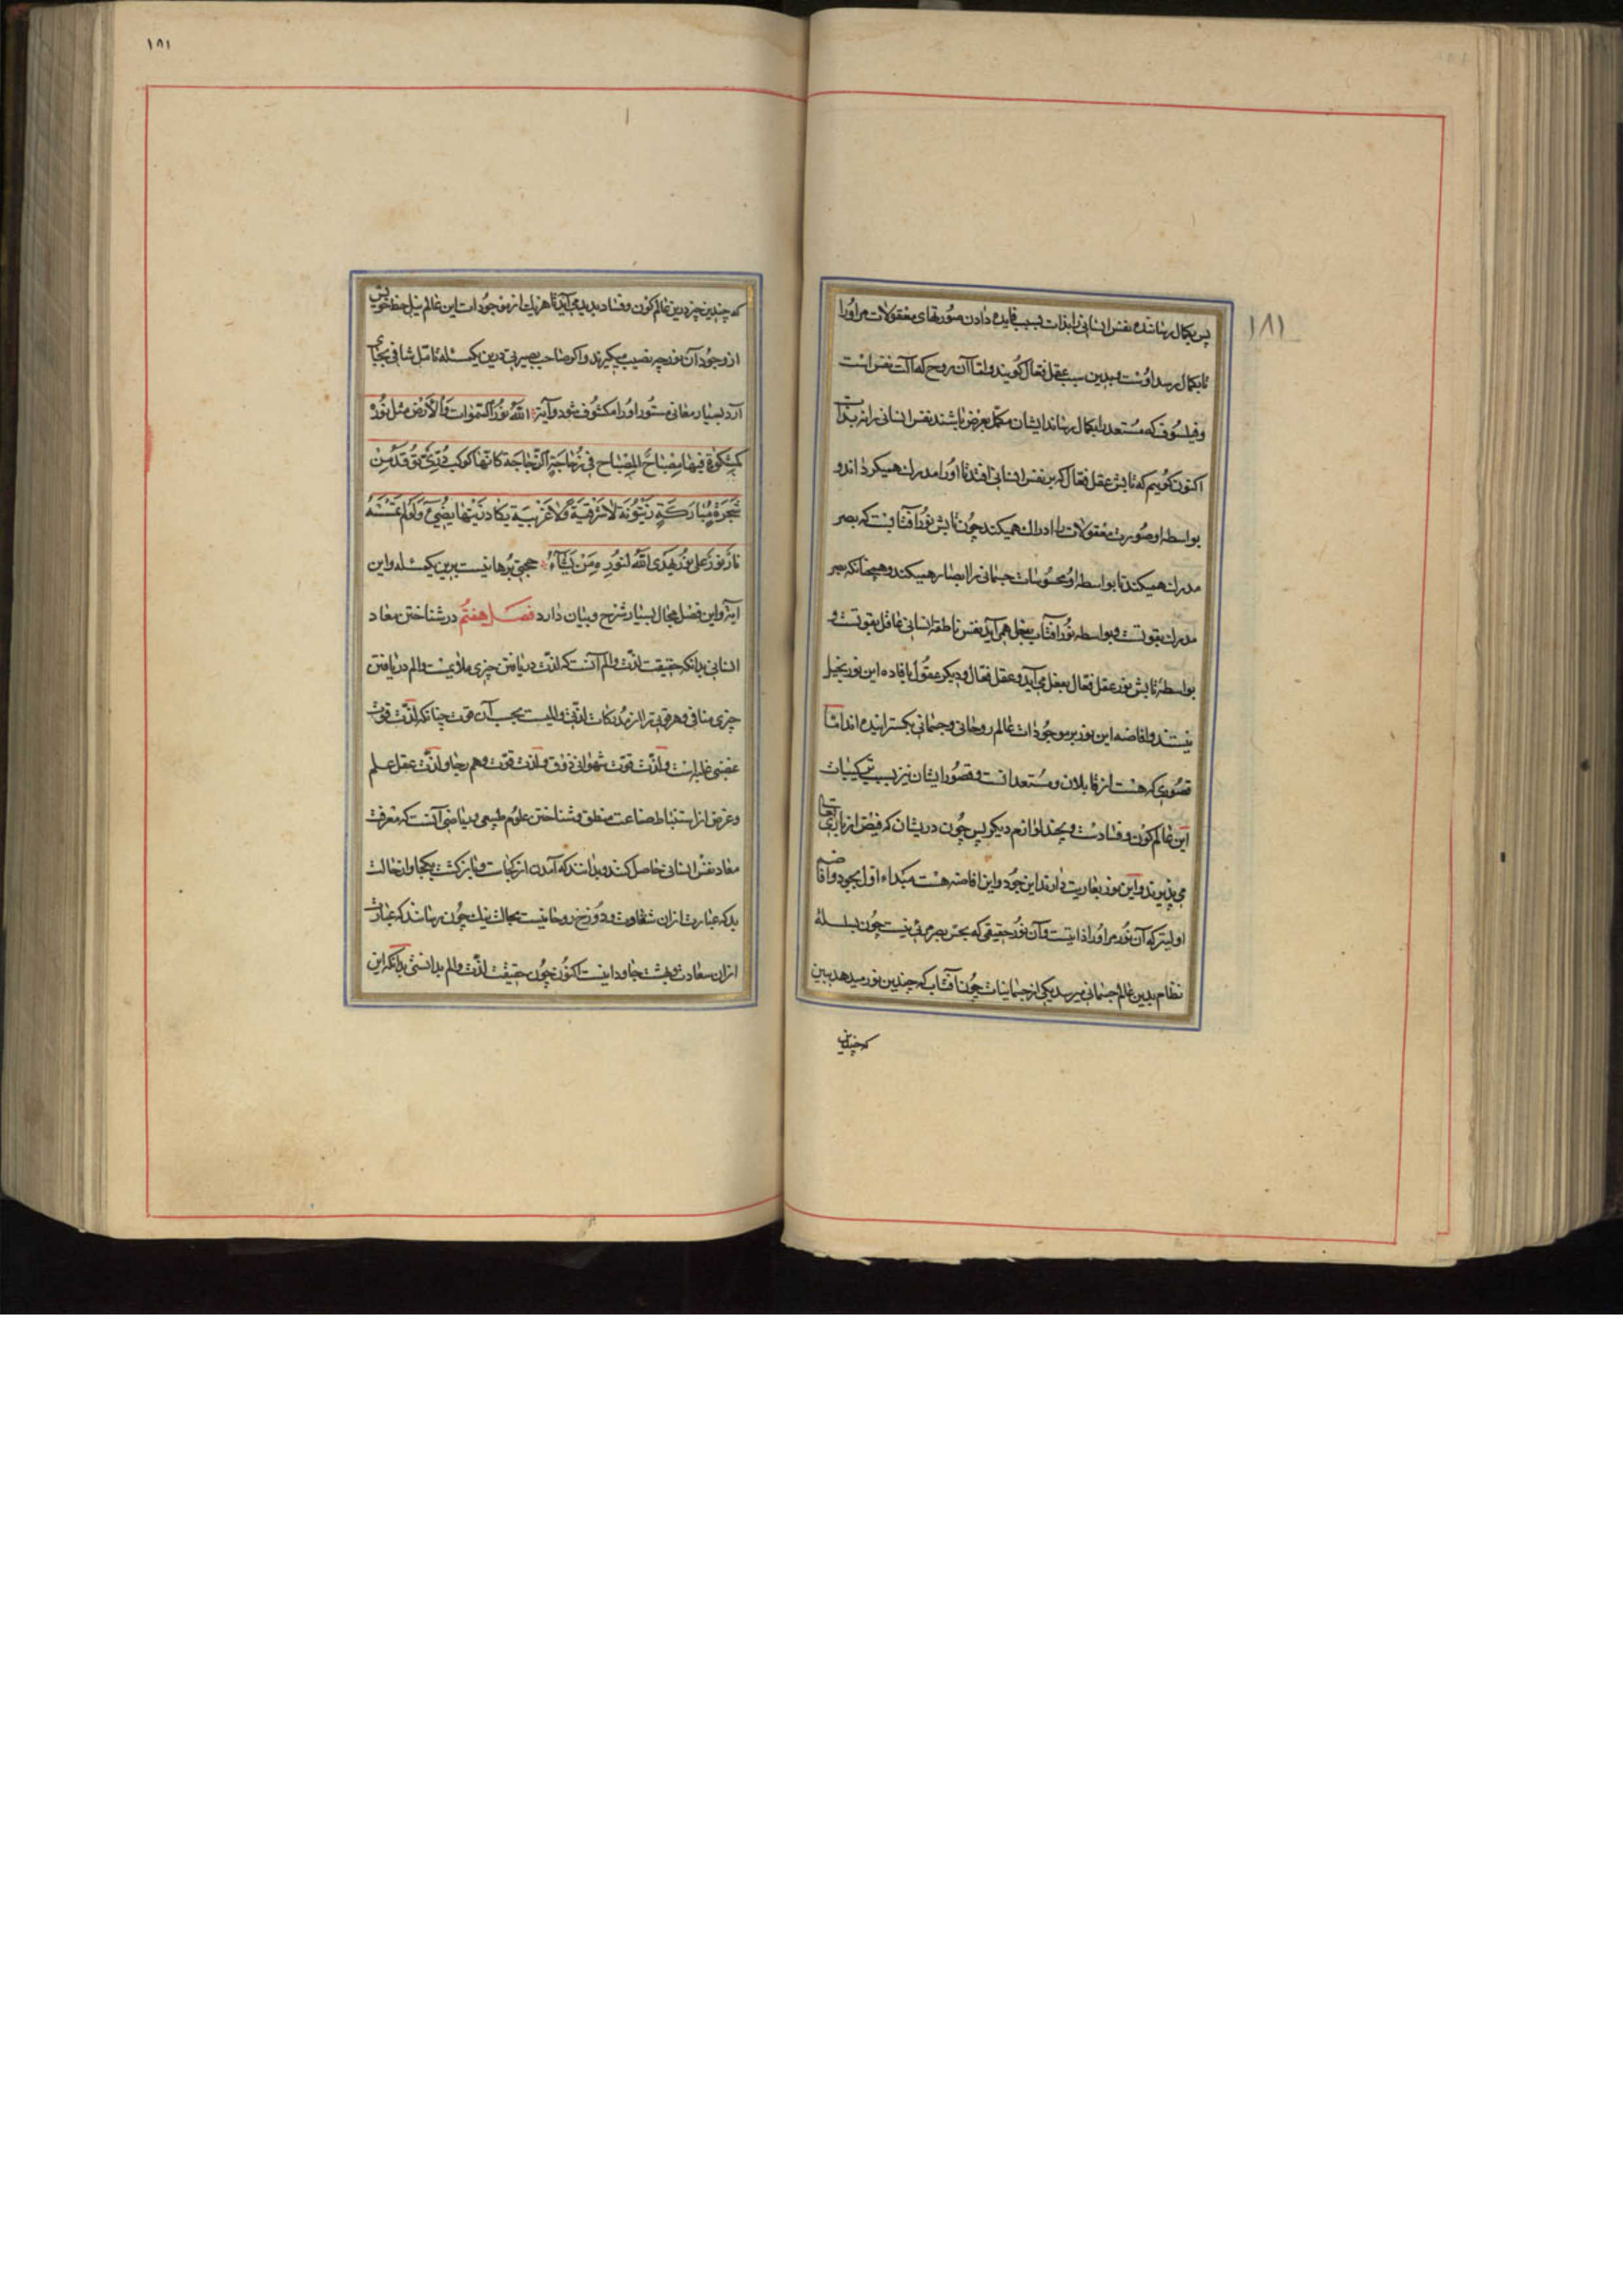 ۱۸۱
پس بکمال رساننده نفس انسانی را بذات بسبب فایده دادن صورتهای معقولات مر او را
تا بکمال رسد اوست و بدین سبب عقل فعال گویند و اما آن روح که آلت نفس است
و فیلسوف که مستعد را بکمال رساند ایشان مکمل بعرض باشند نفس انسانی را نه بذات
اکنون گوییم که تابش عقل فعال که بر نفس انسانی افتد تا او را مدرک همیگرداند و
بواسطه او صورت معقولات را ادراک همیکند چون تابش نور آفتابست که بصر
مدرک همیکند تا بواسطه او محسوسات جسمانی را ابصار همیکند و همچنانکه بصر
مدرک بقوتست و بواسطه نور آفتاب بفعل همی آید نفس ناطقه انسانی عاقل بقوتست و
بواسطه تابش نور عقل فعال بفعل می آید و عقل فعال و دیگر عقول بافاده این نور بخیل
نیستند و افاضه این نور بر موجودات عالم روحانی و جسمانی بگسترانیده اند اما
قصوری که هست از قابلان و مستعدانست و قصور ایشان نیز بسبب ترکیبات
این عالم کون و فسادست و بچند لوازم دیگر پس چون دریشان که فیض از باری تعالی
می پذیرند و این نور بعاریت دارند این جود و این افاضه هست مبداء اول بجود و افاضه
اولیتر که آن نور مر او را ذاتیست و آن نور حقیقی که بحس بصر مرئی نیست چون بسلسله
نظام بدین عالم جسمانی میرسد یکی از جسمانیات چون آفتاب که چندین نور میدهد ببین
که چندین
۱۸۱
که چندین چیز درین عالم کون و فساد پدید می آید تا هر یک از موجودات این عالم نیل حظ خویش
از وجود آن نور چه نصیب میگیرند و اگر صاحب بصیرتی درین یکمسئله تامل شافی بجای
آرد بسیار معانی مستور او را مکشوف شود و آیة الله نُورُ السَّمٰوات وَالاَرْض مثل نُورِه
کمِشکوٰة فیها مِصْباحٌ المِصْباح فی زُجاجَةٍ الزُّجاجَة کانّها کوکب دُرّیٌّ یُوقَدُ مِنْ
شَجَرَةٍ مُبارَکَةٍ زَیْتُونَة لا شَرْقِیَةٍ وَلا غَرْبیَة یَکاد زَیْتها یُضیٓءُ وَلَوْ لَم تَمْسَسْهُ
نارٌ نُورٌ عَلیٰ نُور یَهدی الله لنُورِه مَن یَشآءُ حجتی برهانیست برین یکمسئله و این
آیة و این فصل مجال بسیار شرح و بیان دارد فصل هفتم در شناختن معاد
انسانی بدانکه حقیقت لذت و الم آنست که لذت دریافتن چیزی ملایمست و الم دریافتن
چیزی منافی و هر قوتی را از مدرکات لذتی و المیست بحسب آن قوت چنانکه لذت قوت
غضبی غلبه است و لذت قوت شهوانی ذوق و لذت قوت وهم رجا و لذت عقل علم
و غرض از استنباط صناعت منطق و شناختن علوم طبیعی و ریاضی آنست که معرفت
معاد نفس انسانی حاصل کنند و بدانند که آمدن از کجاست و بازگشت بکجا و از حالت
بد که عبارت از آن شقاوت و دوزخ روحانیست بحالت نیک چون رسانند که عبارت
از آن سعادت و بهشت جاودانیست اکنون چون حقیقت لذت و الم بدانستی بدانکه این